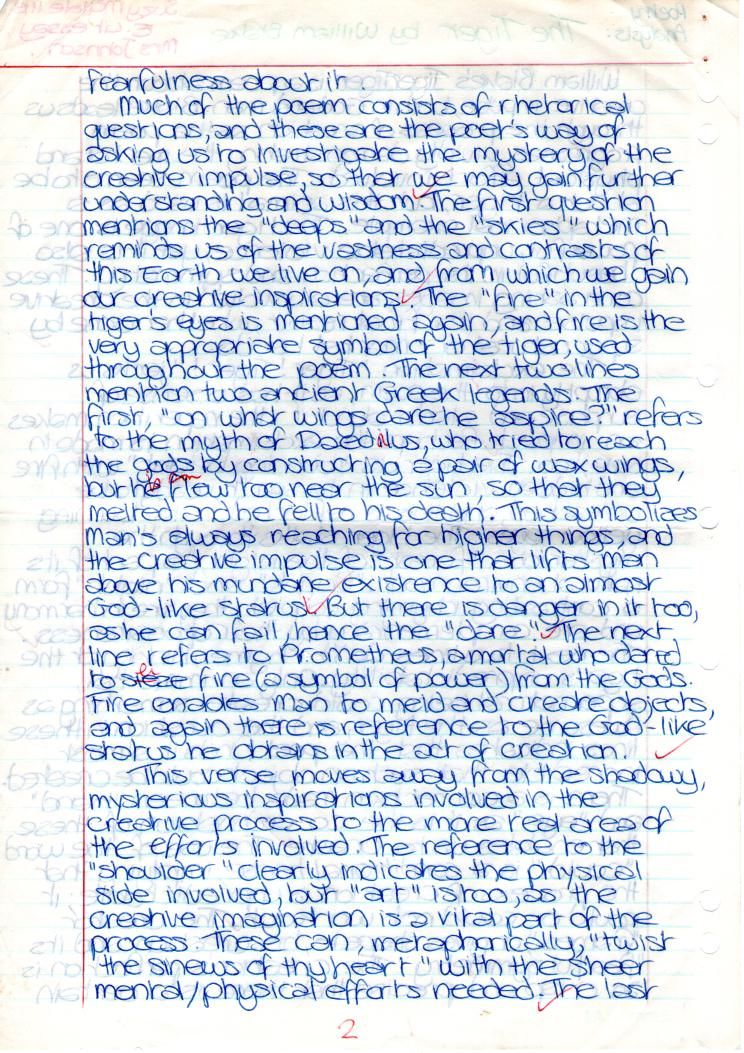 fearfulness about it.
Much of the poem consists of rhetorical
questions, and these are the poet's way of
asking us to investigate the mystery of the
creative impulse, so that we may gain further
understanding and wisdom. The first question
mentions the "deeps" and the "skies" which
reminds us of the vastness and contrasts of
this Earth we live on, and from which we gain
our creative inspirations. The "fire" in the
tiger's eyes is mentioned again, and fire is the
very appropriate symbol of the tiger, used
throughout the poem. The next two lines
mention two ancient Greek legends. The
first, "on what wings dare he aspire?" refers
to the myth of Daedalus, who tried to reach
the gods by constructing a pair of wax wings,
but he flew too near the sun, so that they
melted and he fell to his death. This symbolizes
man's always reaching for higher things, and
the creative impulse is one that lifts man
above his mundane existence to an almost
God-like status. But there is danger in it too,
as he can fail, hence the "dare". The next
line refers to Prometheus, a mortal who dared
to sieze fire (a symbol of power) from the Gods.
Fire enables Man to meld and create objects,
and again there is reference to the God-like
status he obtains in the act of creation.
This verse moves away from the shadowy,
mysterious inspirations involved in the
creative process to the more real area of
the efforts involved. The reference to the
"shoulder" clearly indicates the physical
side involved, but "art" is too, as the
creative imagination is a vital part of the
process. These can, metaphorically, "twist
the sinews of thy heart" with the sheer
mental/physical efforts needed. The last
2